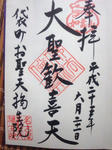 奉拝
平成二十五年
六月二一日
大聖歓喜天
袋町お聖天福生院